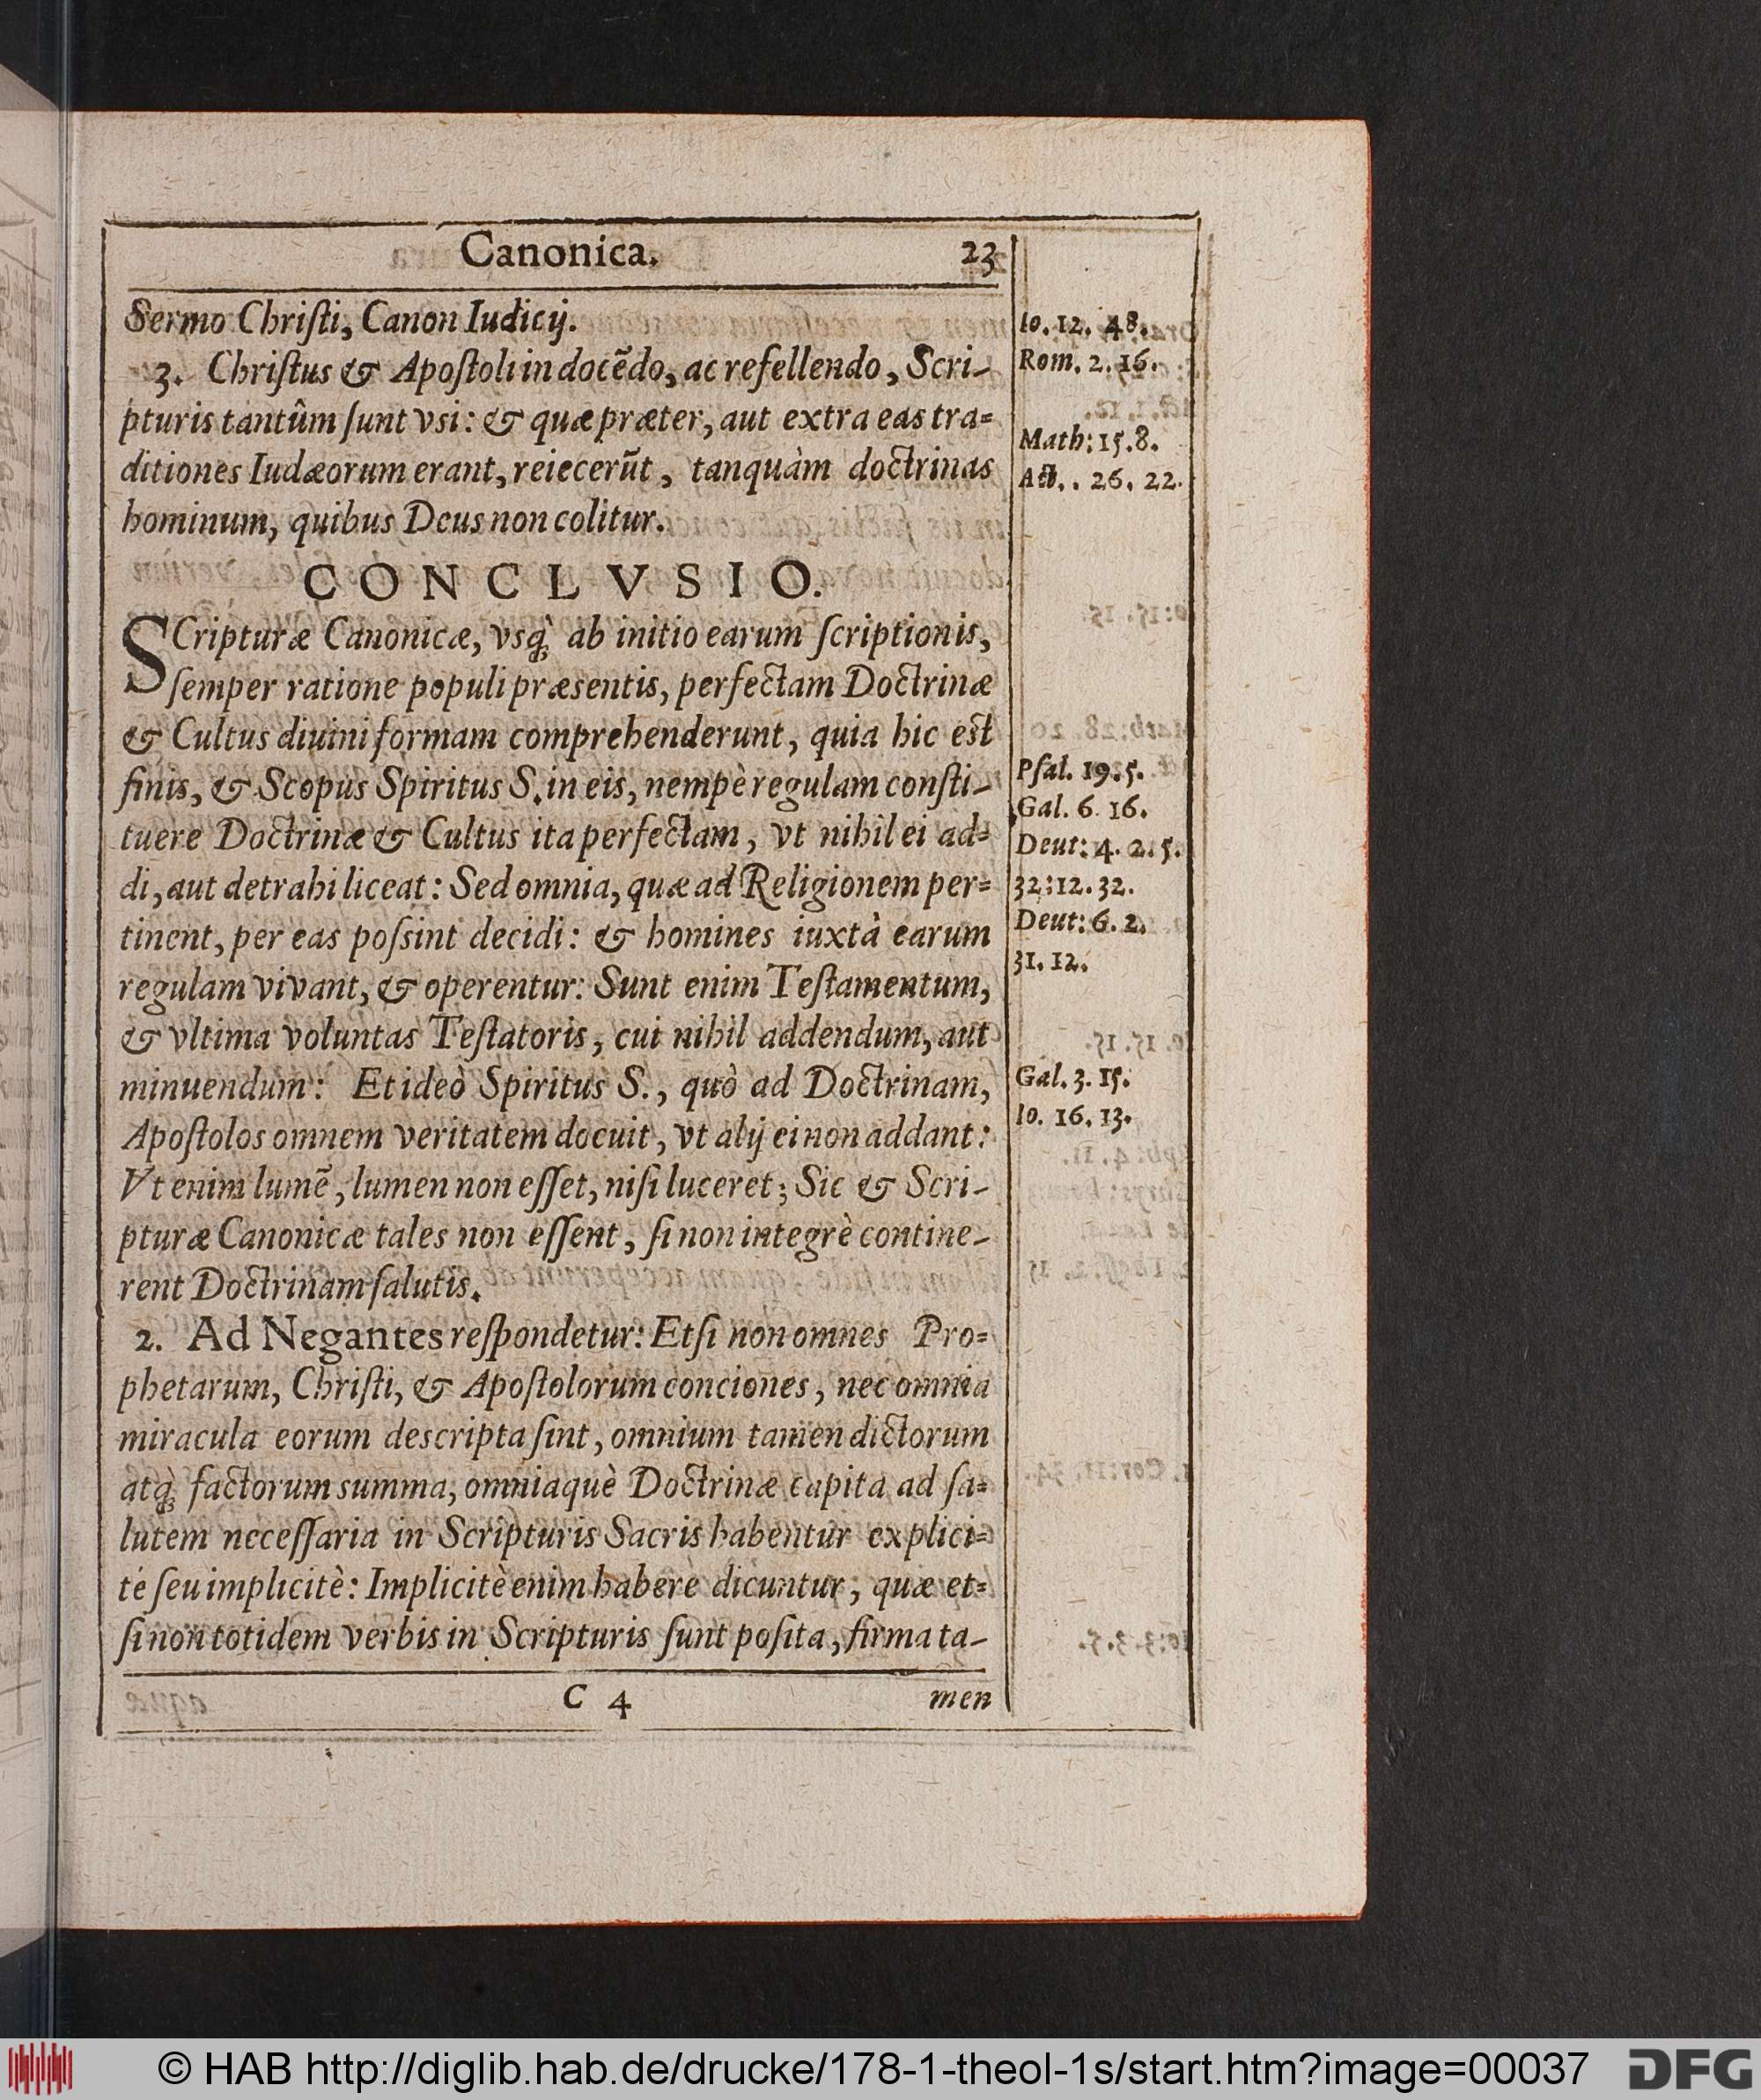 Canonica. 23
Sermo Chriſti, Canon Iudicij.
3. Chriſtus & Apoſtoli in docẽdo, ac refellendo, Scri-
pturis tantûm ſunt vsi: & quæ præter, aut extra eas tra-
ditiones Iudæorum erant, reiecerũt, tanquàm doctrinas
hominum, quibus Deus non colitur.
CONCLVSIO.
SCripturæ Canonicæ, vsq̀; ab initio earum ſcriptionis,
ſemper ratione populi præsentis, perfectam Doctrinæ
& Cultus diuini formam comprehenderunt, quia hic est
finis, & Scopus Spiritus S. in eis, nempè regulam conſti-
tuere Doctrinæ & Cultus ita perfectam, vt nihil ei ad-
di, aut detrahi liceat: Sed omnia, quæ ad Religionem per-
tinent, per eas poſsint decidi: & homines iuxtà earum
regulam vivant, & operentur: Sunt enim Teſtamentum,
& vltima voluntas Teſtatoris, cui nihil addendum, aut
minuendum: Et ideò Spiritus S., quò ad Doctrinam,
Apoſtolos omnem veritatem docuit, vt alij ei non addant:
Vt enim lumẽ, lumen non eſſet, niſi luceret; Sic & Scri-
pturæ Canonicæ tales non eſſent, ſi non integrè contine-
rent Doctrinam ſalutis.
2. Ad Negantes reſpondetur: Etſi non omnes Pro-
phetarum, Chriſti, & Apoſtolorum conciones, nec omnia
miracula eorum descripta ſint, omnium tamen dictorum
atq̀; factorum summa, omniaquè Doctrinæ capita ad ſa-
lutem neceſſaria in Scripturis Sacris habentur explici-
tè ſeu implicitè: Implicitè enim habere dicuntur, quæ et-
ſi non totidem verbis in Scripturis ſunt poſita, firma ta-
C 4 men
Io. 12. 48.
Rom. 2. 16.
Math: 15. 8.
Act. . 26. 22.
Pſal. 19. 5.
Gal. 6. 16.
Deut: 4. 2. 5.
32: 12. 32.
Deut: 6. 2.
31. 12.
Gal. 3. 15.
Io. 16. 13.
© HAB http://diglib.hab.de/drucke/178-1-theol-1s/start.htm?image=00037 DFG